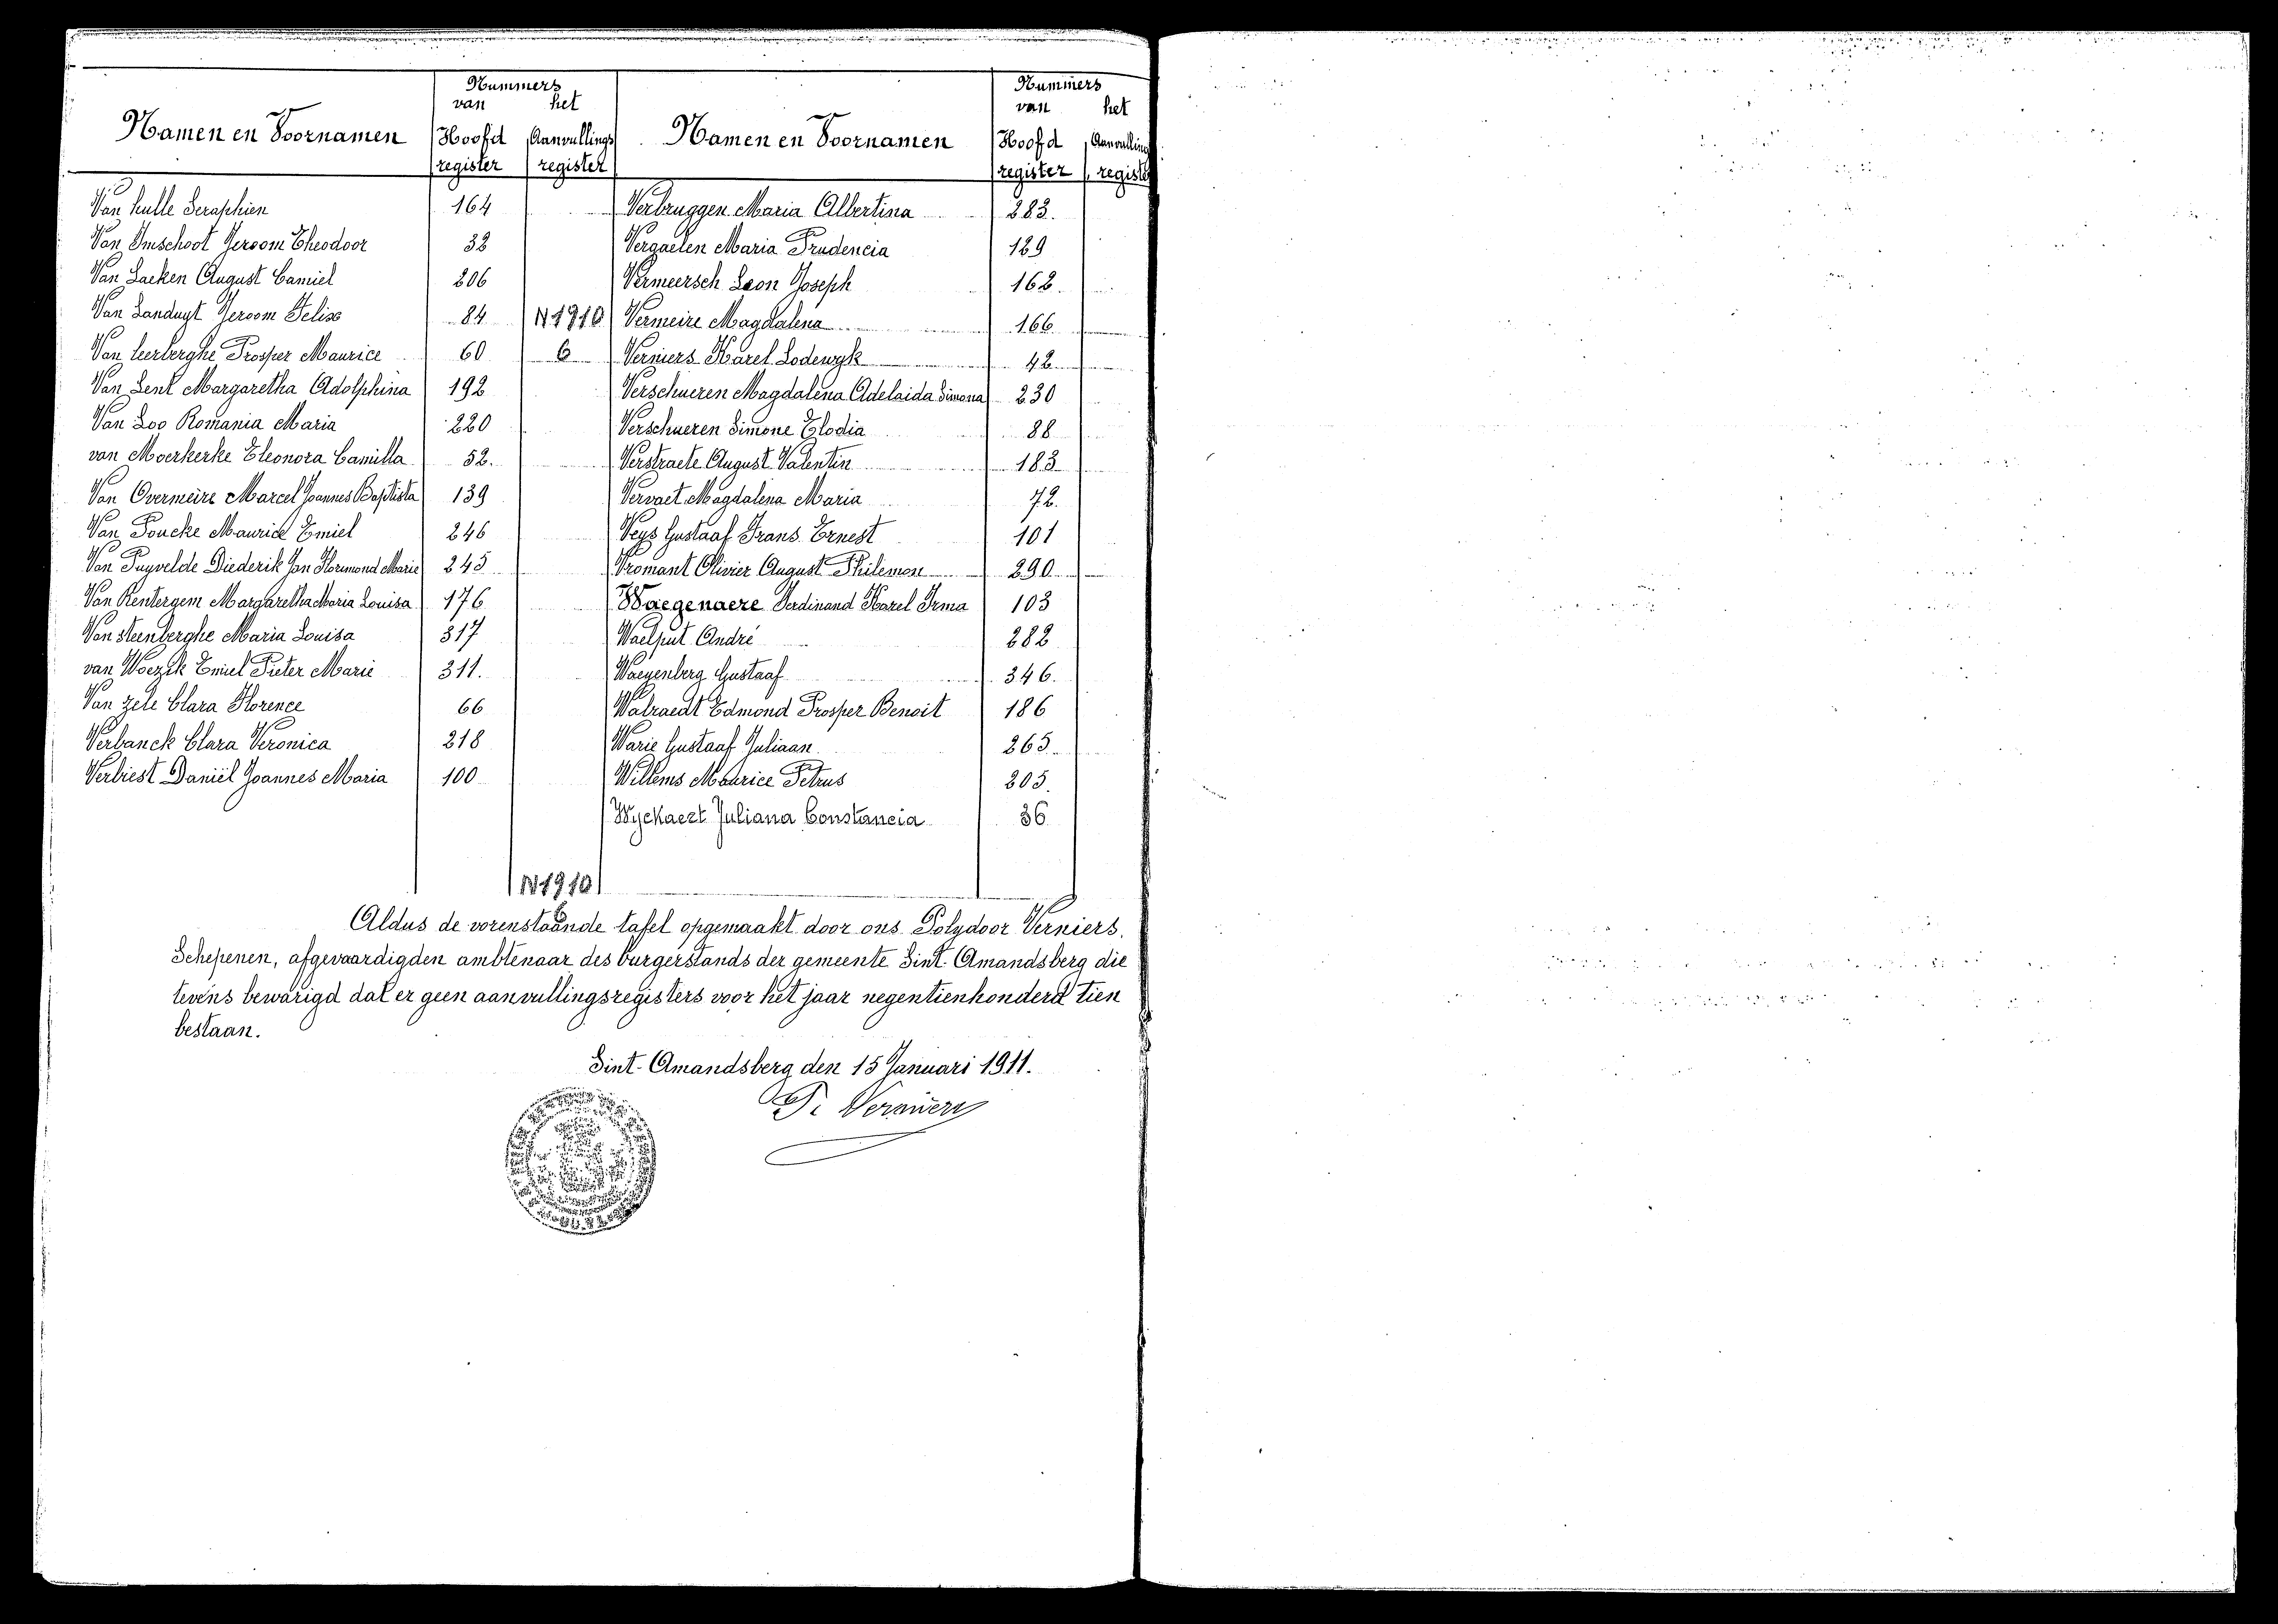 Nummers
van het
Namen en Voornamen Hoofd Aanvullings
register register
Van hulle Seraphien 164
Van Imschoot Jeroom Theodoor 32
Van Laeken August Camiel 206
Van Landuyt Jeroom Felix 84 N 1910
Van Leerberghe Prosper Maurice 60 6
Van Lent Margaretha Adolphina 192
Van Loo Romania Maria 220
van Moerkerke Eleonora Camilla 52.
Van Overmeire Marcel Joannes Baptista 139
Van Poucke Maurice Emiel 246
Van Puyvelde Diederik Jan Florimond Marie 245
Van Rentergem Margaretha Maria Louisa 176
Van steenberghe Maria Louisa 317
van Woezik Emiel Pieter Marie 311.
Van Zele Clara Florence 66
Verbanck Clara Veronica 218
Verbiest Daniël Joannes Maria 100
N 1910
6
Nummers
van het
Namen en Voornamen Hoofd Aanvulling
register registe
Verbruggen Maria Albertina 283.
Vergaelen Maria Prudencia 129
Vermeersch Leon Joseph 162.
Vermeire Magdalena 166
Verniers Karel Lodewyk 42
Verschueren Magdalena Adelaida Simona 230
Verschueren Simone Elodia 88
Verstraete August Valentin 183
Vervaet Magdalena Maria 72.
Veys Gustaaf Frans Ernest 101
Vromant Olivier August Philemon 290
Waegenaere Ferdinand Karel Irma 103
Waelput André 282
Waeyenberg Gustaaf 346.
Walraedt Edmond Prosper Benoit 186
Warie Gustaaf Juliaan 265
Willems Maurice Petrus 205.
Wyckaert Juliana Constancia 36
Aldus de vorenstaande tafel opgemaakt door ons Polydoor Verniers,
Schepenen, afgevaardigden ambtenaar des burgerstands der gemeente Sint-Amandsberg die
tevens bewarigd dat er geen aanvullingsregisters voor het jaar negentienhonderd tien
bestaan.
Sint-Amandsberg den 15 Januari 1911.
P. Verniers